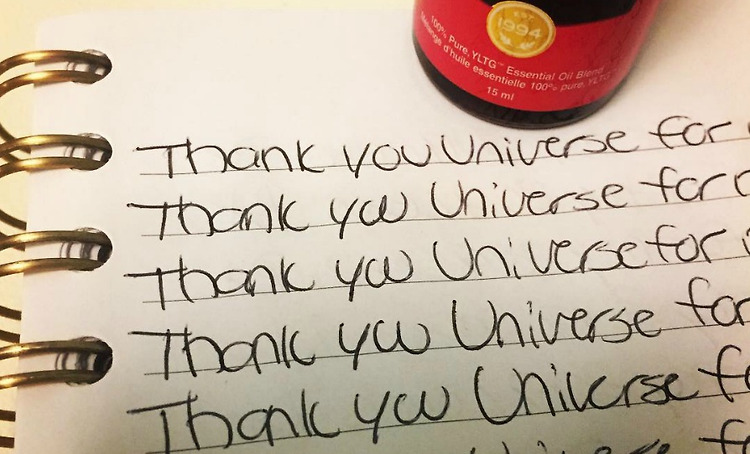 EST.
1994
100% Pure, YLTG™ Essential Oil Blend
Mélange d'huile essentielle 100% pure, YLTG
15 ml
Thank you Universe for
Thank you Universe for
Thank you Universe for
Thank you Universe for
Thank you Universe